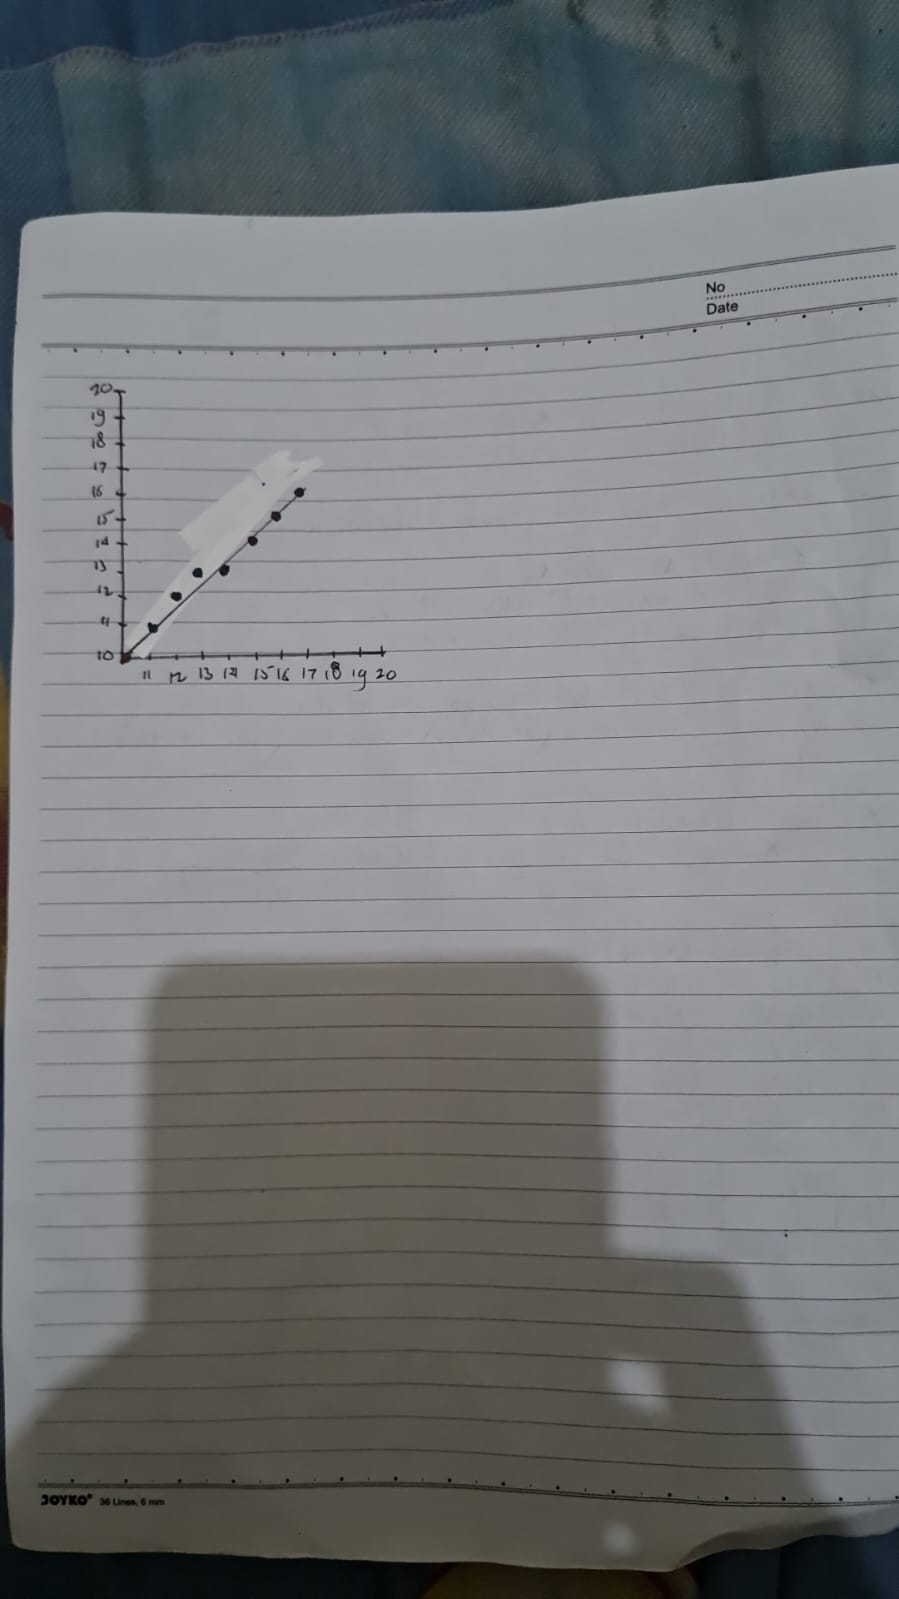 No
Date
20
19
18
17
16
15
14
13
12
11
10
11 12 13 14 15 16 17 18 19 20
JOYKO® 36 Lines, 6 mm